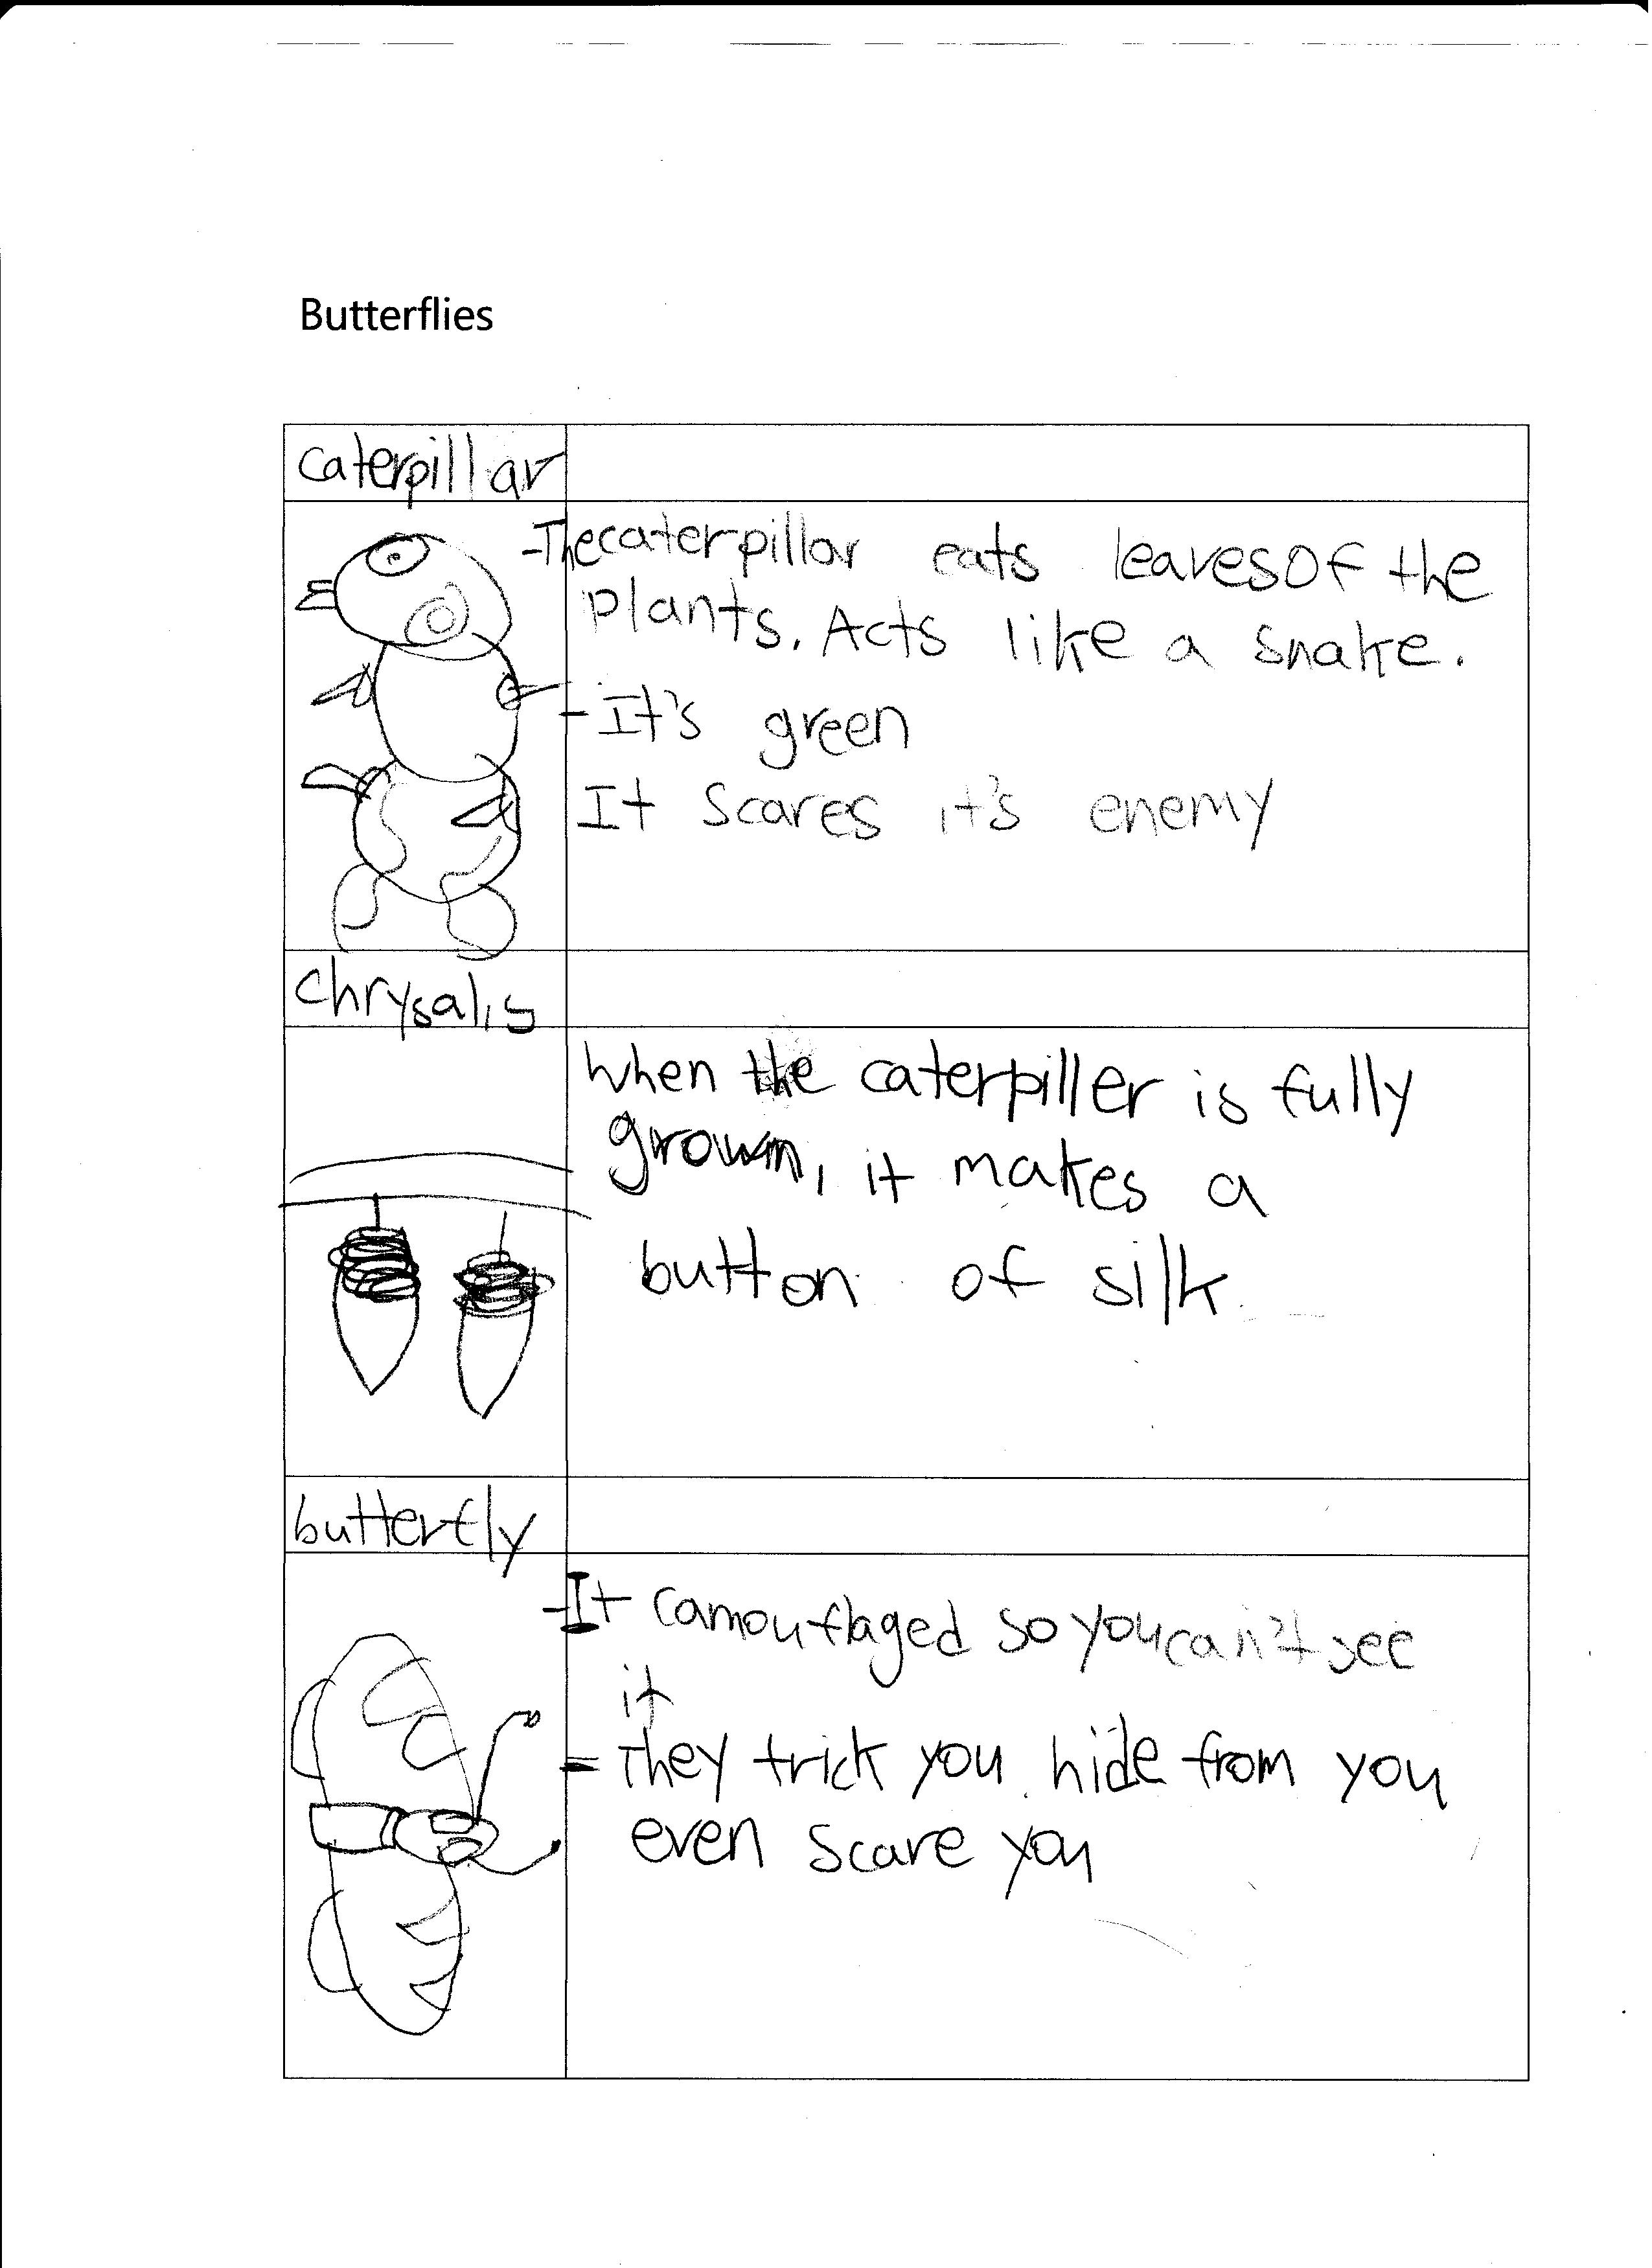 Butterflies
caterpillar
-The caterpillar eats leaves of the
plants. Acts like a snake.
-It's green
It scares it's enemy
chrysalis
when the caterpiller is fully
grown, it makes a
button of silk
butterfly
-It camouflaged so you can't see
it
= They trick you hide from you
even scare you